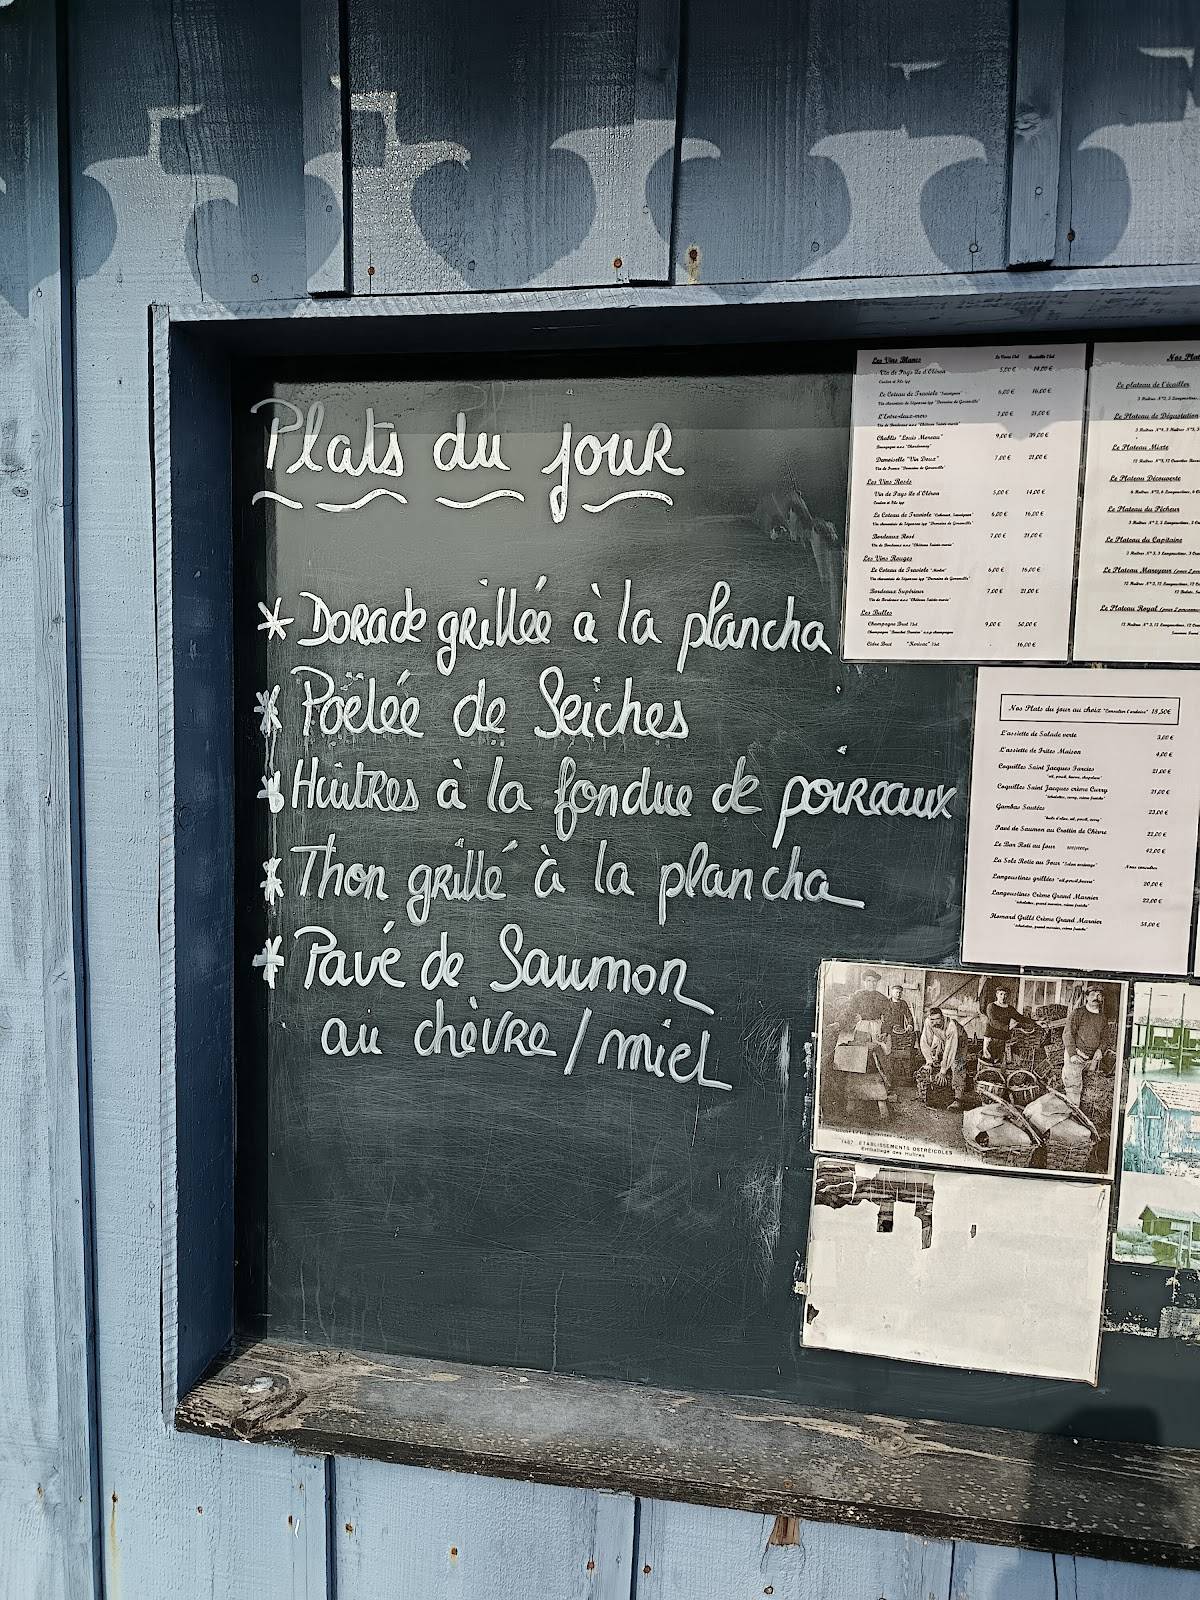 Plats du jour
* Dorade grillée à la plancha
* Poëlée de Seiches
* Huitres à la fondue de poireaux
* Thon grillé à la plancha
* Pavé de Saumon
au chèvre / miel
Les Vins Blancs
Vin de Pays île d'Oléron 5,00 € 14,00 €
Le Coteau de Traviole "Sauvignon" 6,00 € 16,00 €
L'Entre-deux-mers 7,00 € 21,00 €
Chablis "Louis Moreau" 9,00 € 39,00 €
Demoiselle "Vin Doux" 7,00 € 21,00 €
Les Vins Rosés
Vin de Pays île d'Oléron 5,00 € 14,00 €
Le Coteau de Traviole 6,00 € 16,00 €
Bordeaux Rosé 7,00 € 21,00 €
Les Vins Rouges
Le Coteau de Traviole 6,00 € 16,00 €
Bordeaux Supérieur 7,00 € 21,00 €
Les Bulles
Champagne Brut 9,00 € 50,00 €
Cidre Brut 16,00 €
Nos Plat
Le plateau de L'écailler
Le Plateau de Dégustation
Le Plateau Mixte
Le Plateau Découverte
Le Plateau du Pêcheur
Le Plateau du Capitaine
Le Plateau Mareyeur
Le Plateau Royal
Nos Plats du jour au choix "Consulter l'ardoise" 18,50€
L'assiette de Salade verte 3,00 €
L'assiette de Frites Maison 4,00 €
Coquilles Saint Jacques Farcies 21,00 €
"ail, persil, beurre, chapelure"
Coquilles Saint Jacques crème Curry 21,00 €
"échalottes, curry, crème fraîche"
Gambas Sautées 23,00 €
"huile d'olive, ail, persil, curry"
Pavé de Saumon au Crottin de Chèvre 22,00 €
Le Bar Roti au four 42,00 €
La Sole Rotie au Four "Selon arrivage" Nous consulter
Langoustines grillées "ail,persil,beurre" 20,00 €
Langoustines Crème Grand Marnier 22,00 €
"échalottes, grand marnier, crème fraîche"
Homard Grillé Crème Grand Marnier 58,00 €
"échalottes, grand marnier, crème fraîche"
1487 ÉTABLISSEMENTS OSTRÉICOLES
Emballage des Huîtres